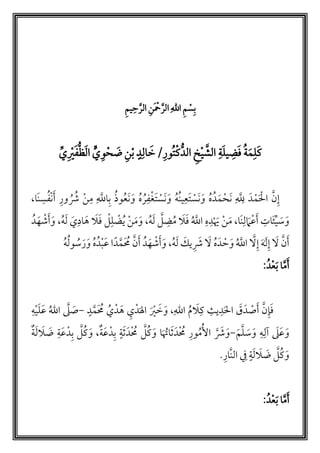 بِسْمِ اللهِ الرَّحْمَنِ الرَّحِيمِ
كَلِمَةُ فَضِيلَةِ الشَّيْخِ الدُّكْتُورِ/ خَالِدِ بْنِ ضَحْوِيٍّ الظَّفِيْرِيِّ
إِنَّ الْحَمْدَ لِلَّهِ نَحْمَدُهُ وَنَسْتَعِينُهُ وَنَسْتَغْفِرُهُ وَنَعُوذُ بِاللَّهِ مِنْ شُرُورِ أَنْفُسِنَا،
وَسَيِّئَاتِ أَعْمَالِنَا، مَنْ يَهْدِهِ اللهُ فَلَا مُضِلَّ لَهُ، وَمَنْ يُضْلِلْ فَلَا هَادِيَ لَهُ، وَأَشْهَدُ
أَنَّ لَا إِلَهَ إِلَّا اللهُ وَحْدَهُ لَا شَرِيكَ لَهُ، وَأَشْهَدُ أَنَّ مُحَمَّدًا عَبْدُهُ وَرَسُولُهُ
أَمَّا بَعْدُ:
فَإِنَّ أَصْدَقَ الحَدِيثِ كَلَامُ اللهِ، وَخَيْرَ الهَدْيِ هَدْيُ مُحَمَّدٍ -صَلَّى اللهُ عَلَيْهِ
وَعَلَى آلِهِ وَسَلَّمَ- وَشَرَّ الأُمُورِ مُحْدَثَاتُهَا وَكُلَّ مُحْدَثَةٍ بِدْعَةٌ، وَكُلَّ بِدْعَةٍ ضَلَالَةٌ
وَكُلَّ ضَلَالَةٍ فِي النَّارِ.
أَمَّا بَعْدُ: